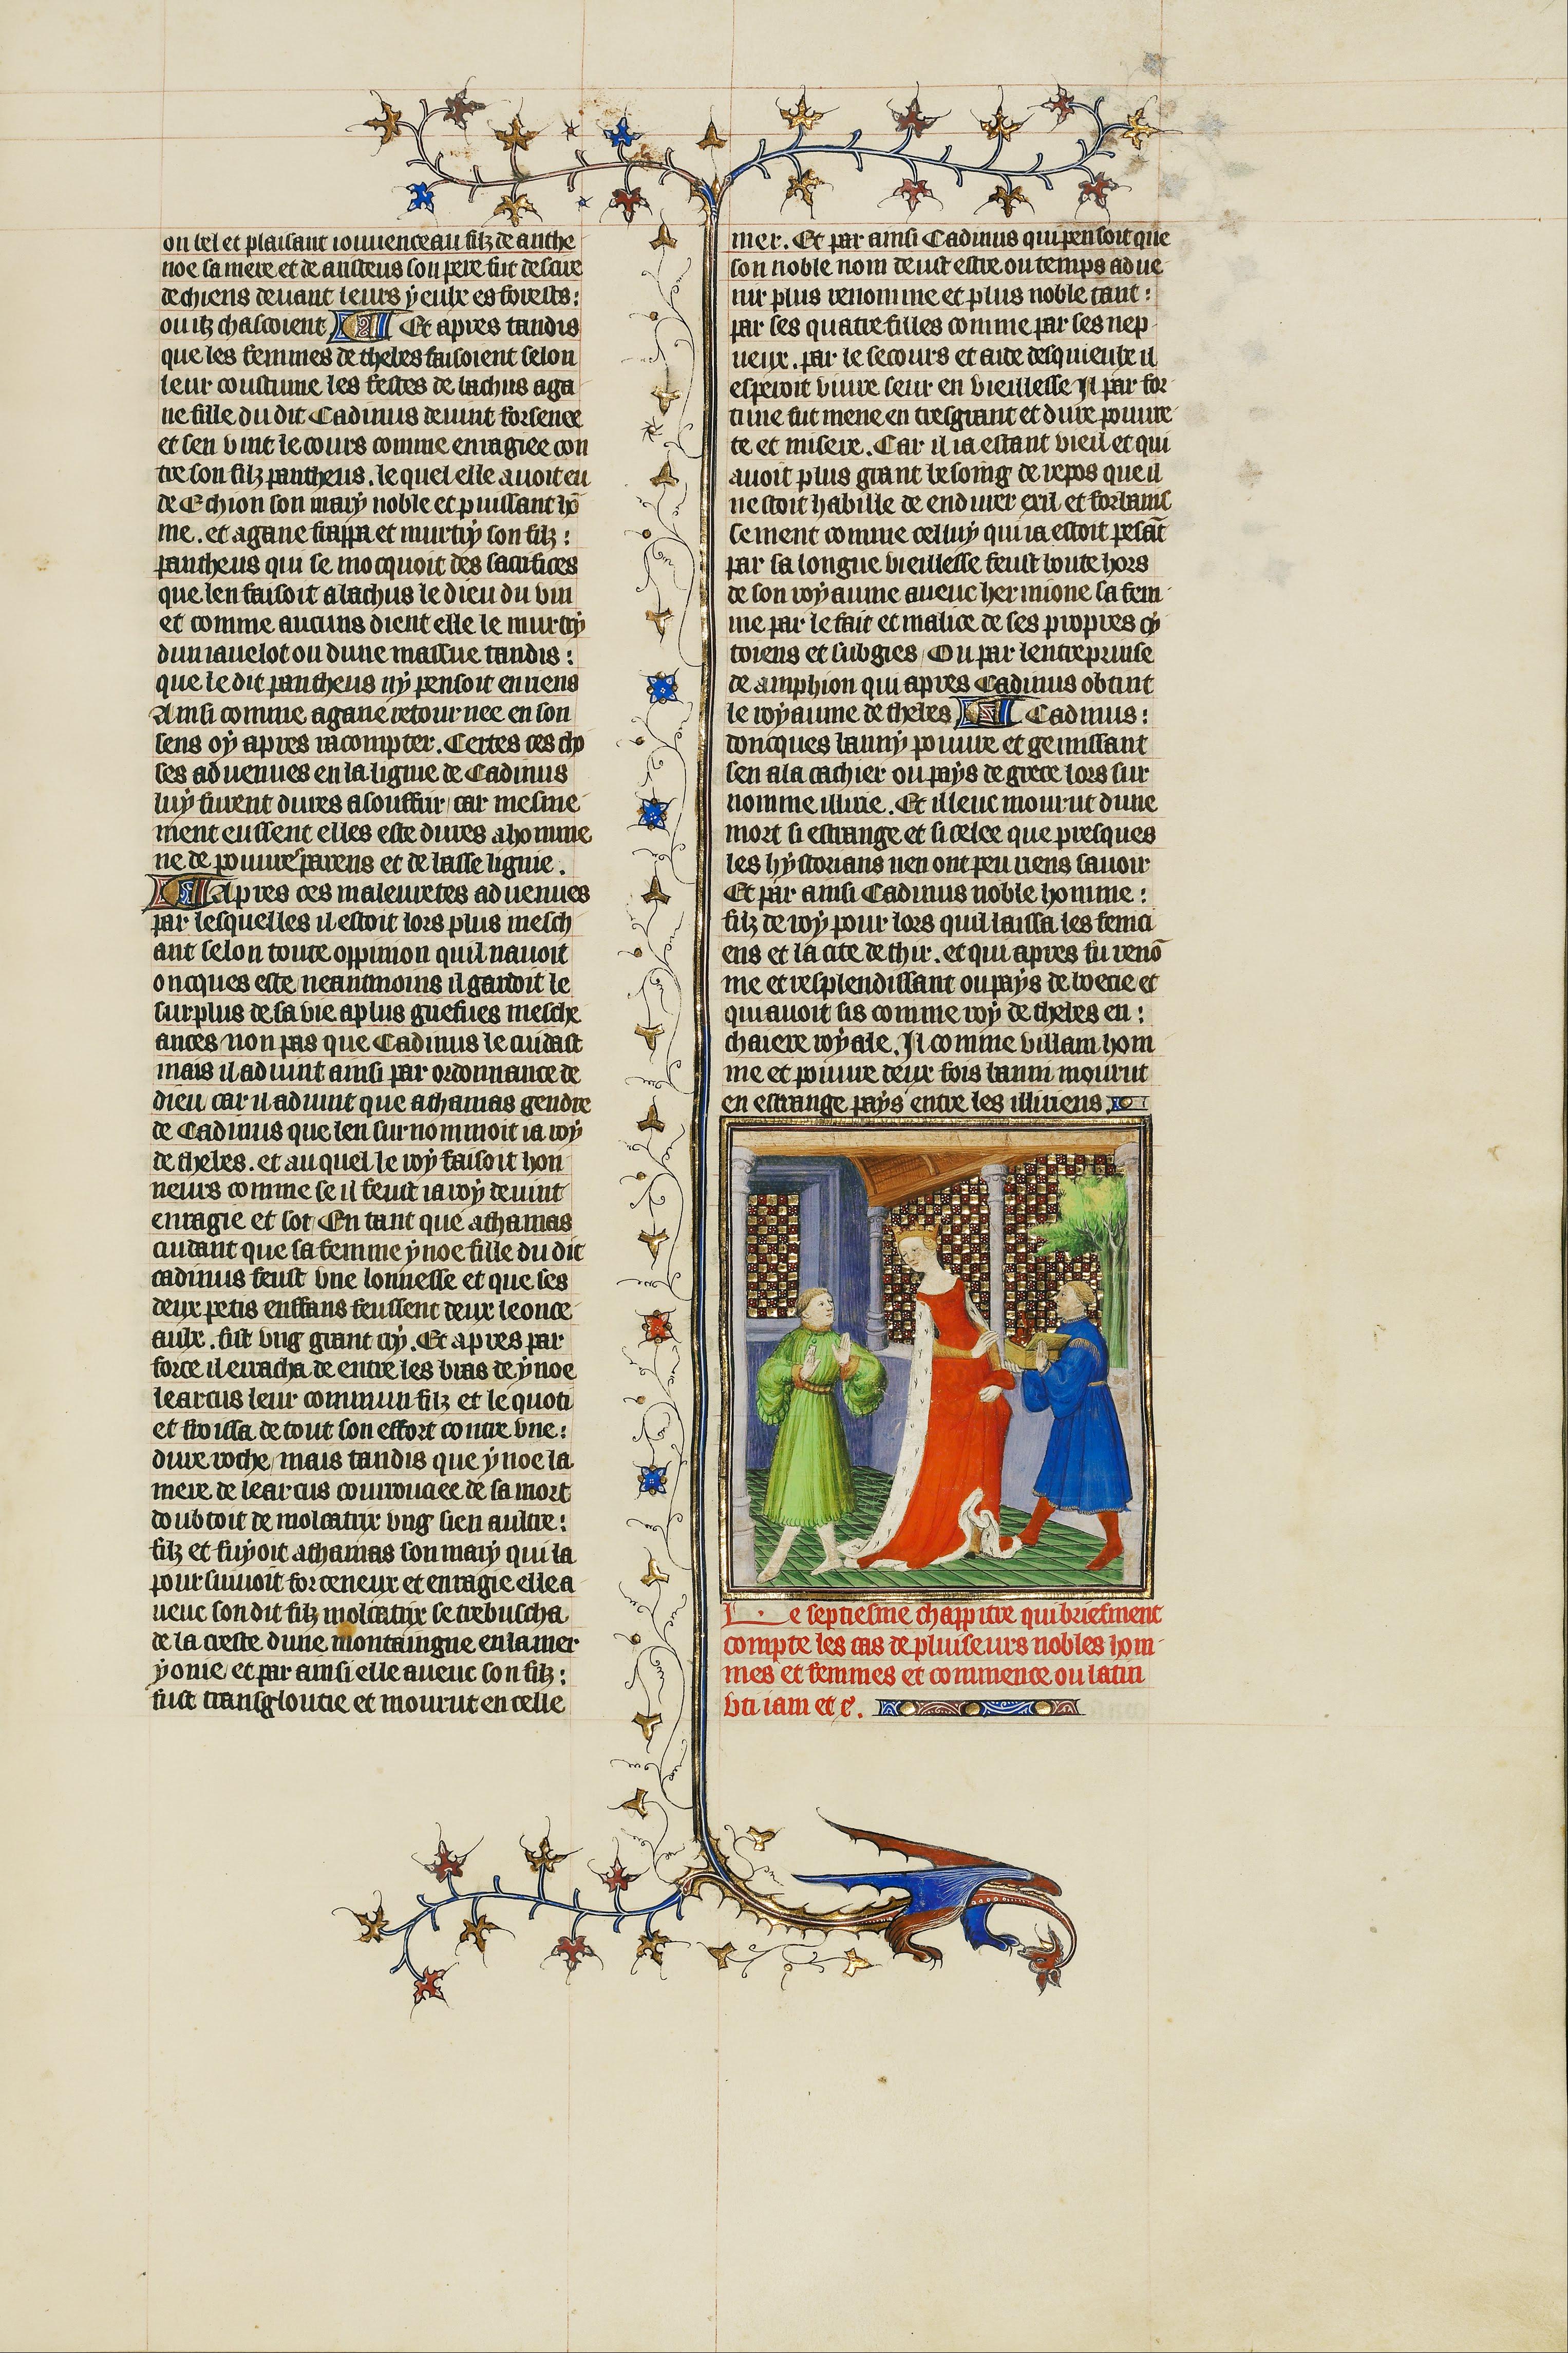 on bel et plaisant iouuenceau filz de anthe
noe sa mere et de aristeus son pere fut desciré
de chiens deuant leurs yeulx es forests:
ou ilz chassoient Et apres tandis
que les femmes de thebes faisoient selon
leur coustume les festes de bachus aga
ne fille du dit Cadmus deuint forsenee
et sen vint le cours comme enragiee con
tre son filz pantheus. le quel elle auoit eu
de Echion son mary noble et puissant hō
me. et agane frappa et murtry son filz:
pantheus qui se mocquoit des sacrifices
que len faisoit a bachus le dieu du vin
et comme aucuns dient elle le murtry
dun iauelot ou dune massue tandis:
que le dit pantheus ny pensoit en riens
Ainsi comme agane retournee en son
sens oy apres racompter. Certes ces cho
ses aduenues en la lignie de Cadmus
luy furent dures a souffrir car mesme
ment eussent elles este dures a homme
ne de poures parens et de basse lignie.
Apres ces maleuretes aduenues
par lesquelles il estoit lors plus mesch
ant selon toute oppinion quil nauoit
oncques este neantmoins il gardoit le
surplus de sa vie a plus griefues mesche
ances non pas que Cadmus le cuidast
mais il aduint ainsi par ordonnance de
dieu car il aduint que athamas gendre
de Cadmus que len surnommoit ia roy
de thebes. et au quel le roy faisoit hon
neurs comme se il feust ia roy deuint
enragie et sot En tant que athamas
cuidant que sa femme ynoe fille du dit
cadmus feust vne lonnesse et que ses
deux petis enffans feussent deux leonce
aulx. fist vng grant cry. Et apres par
force il erracha de entre les bras de ynoe
learcus leur commun filz et le quoti
et froissa de tout son effort contre vne:
dure roche mais tandis que ynoe la
mere de learcus courroucee de sa mort
doubtoit de molcatrix vng sien aultre:
filz et fuyoit athamas son mary qui la
poursuiuoit forceneux et enragie elle a
ueuc son dit filz molcatrix se trebuscha
de la creste dune montaingne en la mer
yonie et par ainsi elle aueuc son filz:
fust transgloutie et mourut en celle
mer. Et par ainsi Cadmus qui pensoit que
son noble nom deust estre ou temps adue
nir plus renomme et plus noble tant:
par ses quatre filles comme par ses nep
ueux. par le secours et aide desquieulx il
esperoit viure seur en vieillesse Il par for
tune fut mene en tresgrant et dure pouure
te et misere. Car il ia estant vieil et qui
auoit plus grant besoing de repos que il
nestoit habille de endurer exil et forbanis
sement comme celluy qui ia estoit pesāt
par sa longue vieillesse feust boute hors
de son royaume aueuc hermione sa fem
me par le fait et malice de ses propres cy
toiens et subgies Ou par lentreprinse
de amphion qui apres Cadmus obtint
le royaume de thebes Cadmus:
doncques banny pouure et gemissant
sen ala cachier ou pays de grece lors sur
nomme illirie. Et illeuc mourut dune
mort si estrange et si celee que presques
les hystorians nen ont peu riens sauoir
Et par ainsi Cadmus noble homme:
filz de roy pour lors quil laissa les fenici
ens et la cite de thir. et qui apres fu renō
me et resplendissant ou pays de boecie et
qui auoit sis comme roy de thebes en:
chaiere royale. Il comme villain hom
me et pouure deux fois banni mourut
en estrange pays entre les illiriens.
Le septiesme chappitre qui briefment
compte les cas de pluiseurs nobles hom
mes et femmes et commence ou latin
vti iam et cʳ.